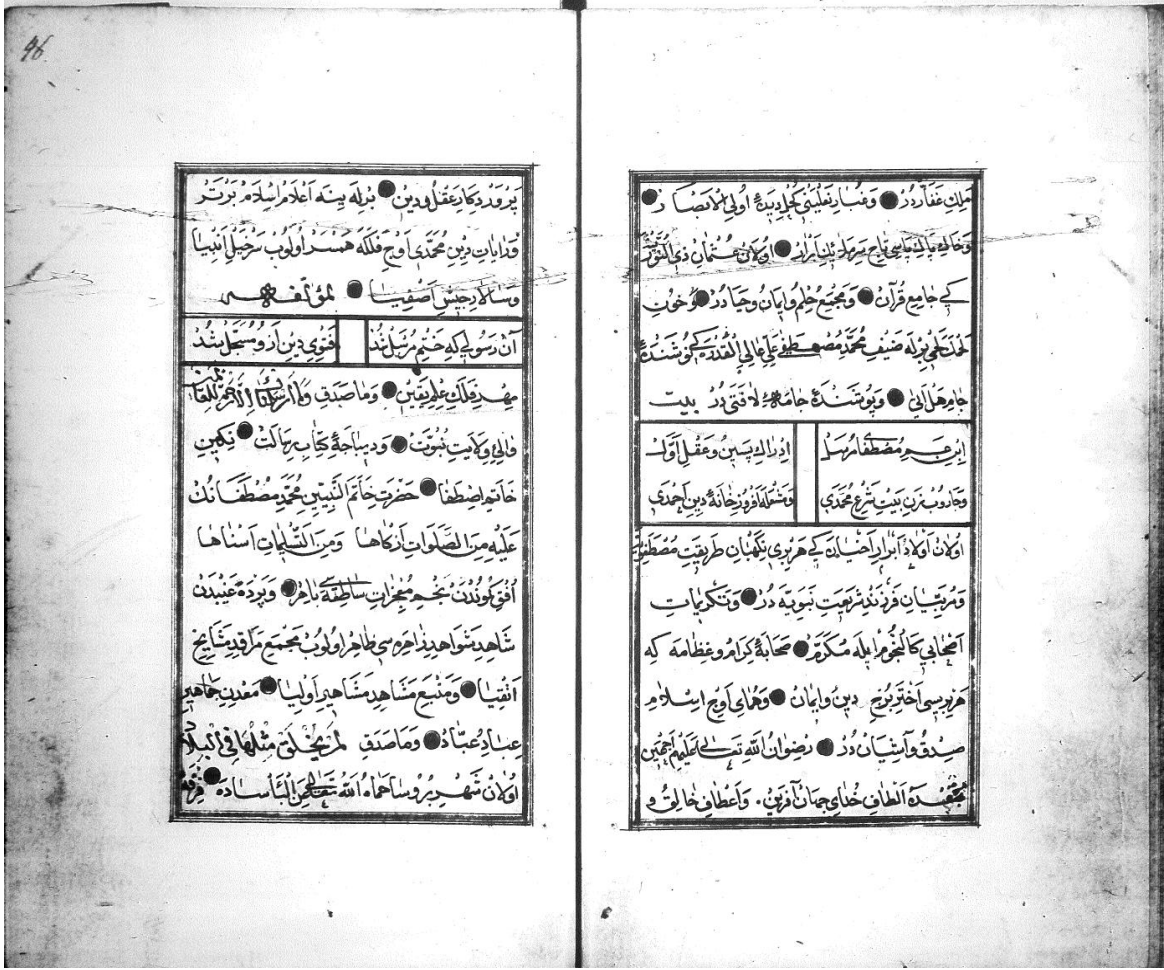 ملك غفاردر ● وغبار نعلینی كحل دیدهٔ اولی الابصار ●
وخاك پاك پاسی تاج سرملائك ابرار ● اولان عثمان ذی النورین
كی جامع قرآن ● ومجمع حلم وایمان وحیادر ● وخون
لحمك لحمی برله ضیف محمد مصطفی علی عالی القدره كی نوشندهٔ
جام هل اتی ● وپوشندهٔ جامهٔ لافتی در بیت
ابن عم مصطفا
ادراك پسین وعقل اول
وجاروب زن بیت شرع محمدی
ومشعله افروز خانهٔ دین احمدی
اولان اولاد ابرار احنیان كی هربری نگهبان طریقت مصطفویه
ومربیان فرزند شریعت نبویه در ● وتكریمات
اصحابی كالنجوم ایله مكرم ● صحابهٔ كرام وعظامه كه
هربریسی اختر برج دین وایمان ● وهمای اوج اسلام
صدق وآشیان در ● رضوان الله تعالی علیهم اجمعین
الطاف خدای جهان آفرین ● واعطاف خالق و
46
پروردكار عقل ودین ● برله ینه اعلام اسلام برتر
ورایات دین محمدی اوج فلكه همسر اولوب سرخیل انبیا
وسالار جیش اصفیا ● لمؤلفه
آن رسولی كه ختم مرسل شد
فتوی دین ازو مسجل شد
مهر فلك علم یقین ● وما صدق وما ارسلناك الا رحمة للعالمین
والی ولایت نبوت ● ودیباجهٔ كتاب رسالت ● نكین
خاتم اصطفا ● حضرت خاتم النبیین محمد مصطفانك
علیه من الصلوات ازكاها ومن التسلیمات اسناها
افق كوندن نجم معجزات ساطعه سی باهر ● وپردهٔ غیبدن
شاهد شواهد ظاهره سی ظاهر اولوب مجمع مراقد مشایخ
اتقیا ● ومنبع مشاهد مشاهیر اولیا ● معدن جماهیر
عباد عباد ● وما صدق لم یخلق مثلها فی البلاد
اولان شهر بروسا حماه الله تعالی عن البأساده ●